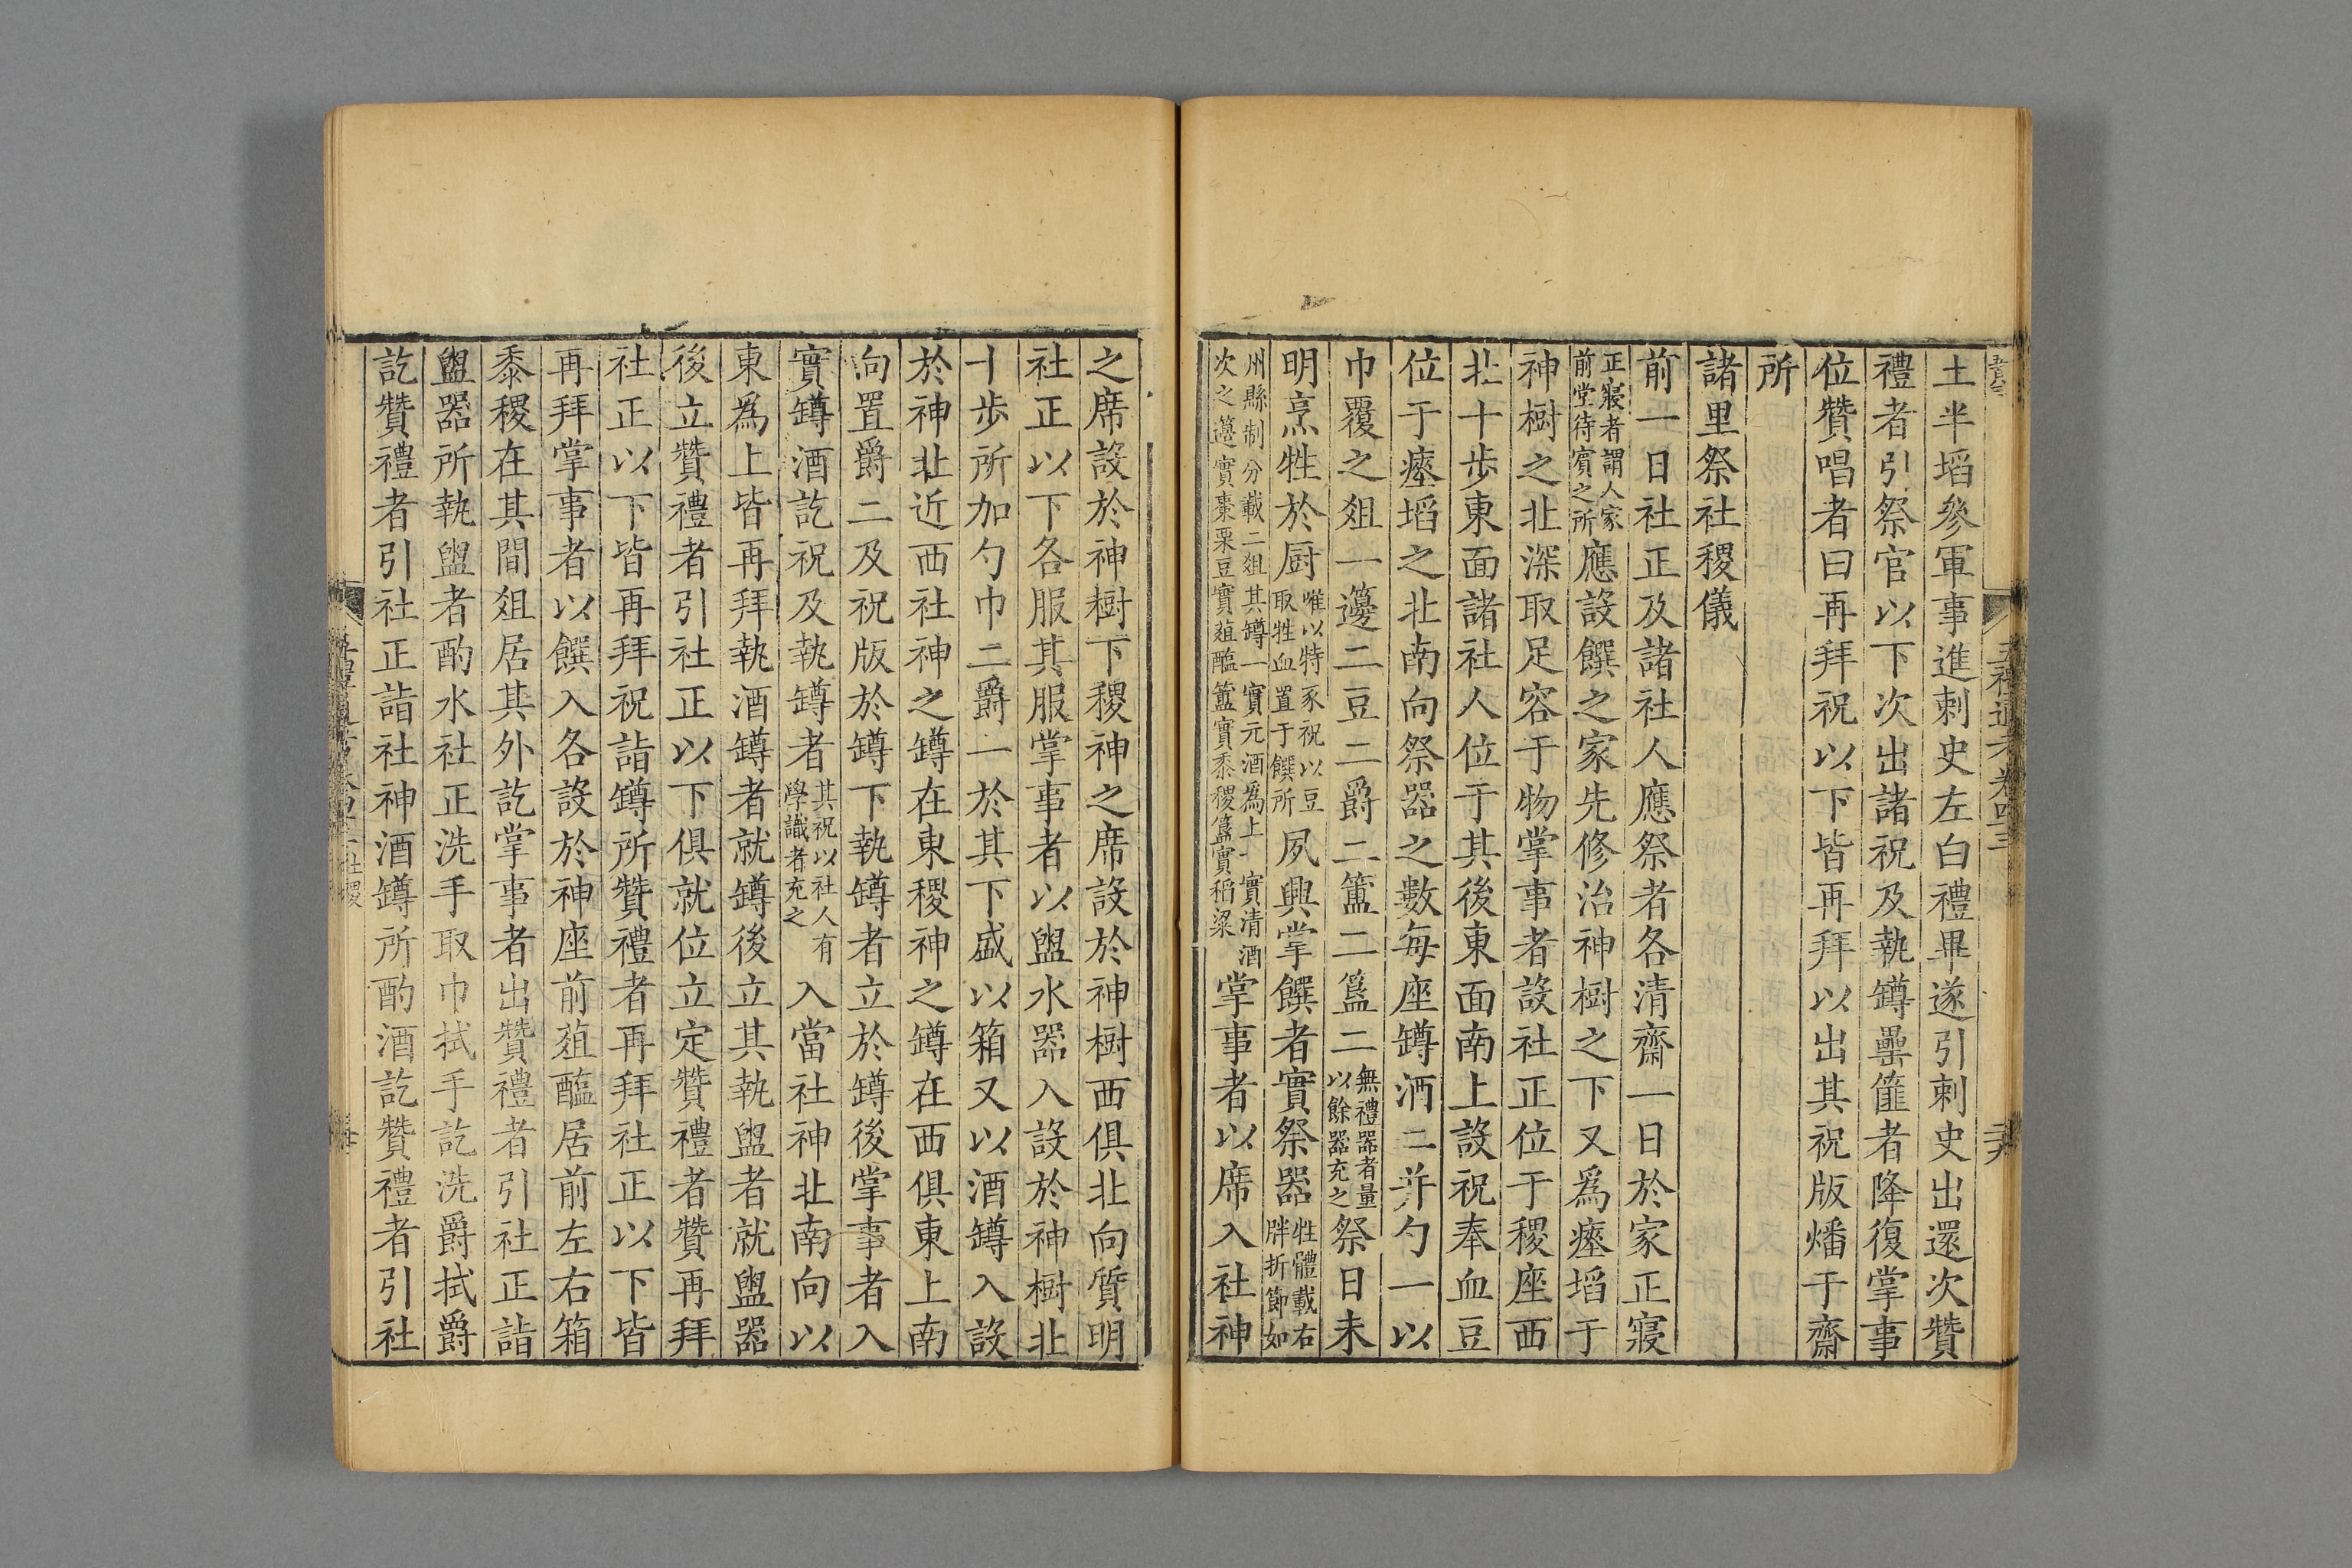 土半坮參軍事進刺史左白禮畢遂引刺史出還次贊
禮者引祭官以下次出諸祝及執罇罍篚者降復掌事
位贊唱者曰再拜祝以下皆再拜以出其祝版燔于齋
所
諸里祭社稷儀
前一日社正及諸社人應祭者各清齋一日於家正寢
正寢者謂人家前堂待賓之所應設饌之家先修治神樹之下又爲瘞坮于
神樹之北深取足容于物掌事者設社正位于稷座西
北十步東面諸社人位于其後東面南上設祝奉血豆
位于瘞坮之北南向祭器之數每座罇酒二并勺一以
巾覆之俎一籩二豆二爵二簠二簋二無禮器者量以餘器充之祭日未
明烹牲於厨唯以特豕祝以豆取牲血置于饌所夙興掌饌者實祭器牲體載右胖折節如
州縣制分載二俎其罇一實元酒為上一實清酒次之籩實棗栗豆實葅醢簠實黍稷簋實稻粱掌事者以席入社神
之席設於神樹下稷神之席設於神樹西俱北向質明
社正以下各服其服掌事者以盥水器入設於神樹北
十步所加勺巾二爵一於其下盛以箱又以酒罇入設
於神北近西社神之罇在東稷神之罇在西俱東上南
向置爵二及祝版於罇下執罇者立於罇後掌事者入
實罇酒訖祝及執罇者其祝以社人有學識者充之入當社神北南向以
東爲上皆再拜執酒罇者就罇後立其執盥者就盥器
後立贊禮者引社正以下俱就位立定贊禮者贊再拜
社正以下皆再拜祝詣罇所贊禮者再拜社正以下皆
再拜掌事者以饌入各設於神座前葅醢居前左右箱
黍稷在其間俎居其外訖掌事者出贊禮者引社正詣
盥器所執盥者酌水社正洗手取巾拭手訖洗爵拭爵
訖贊禮者引社正詣社神酒罇所酌酒訖贊禮者引社